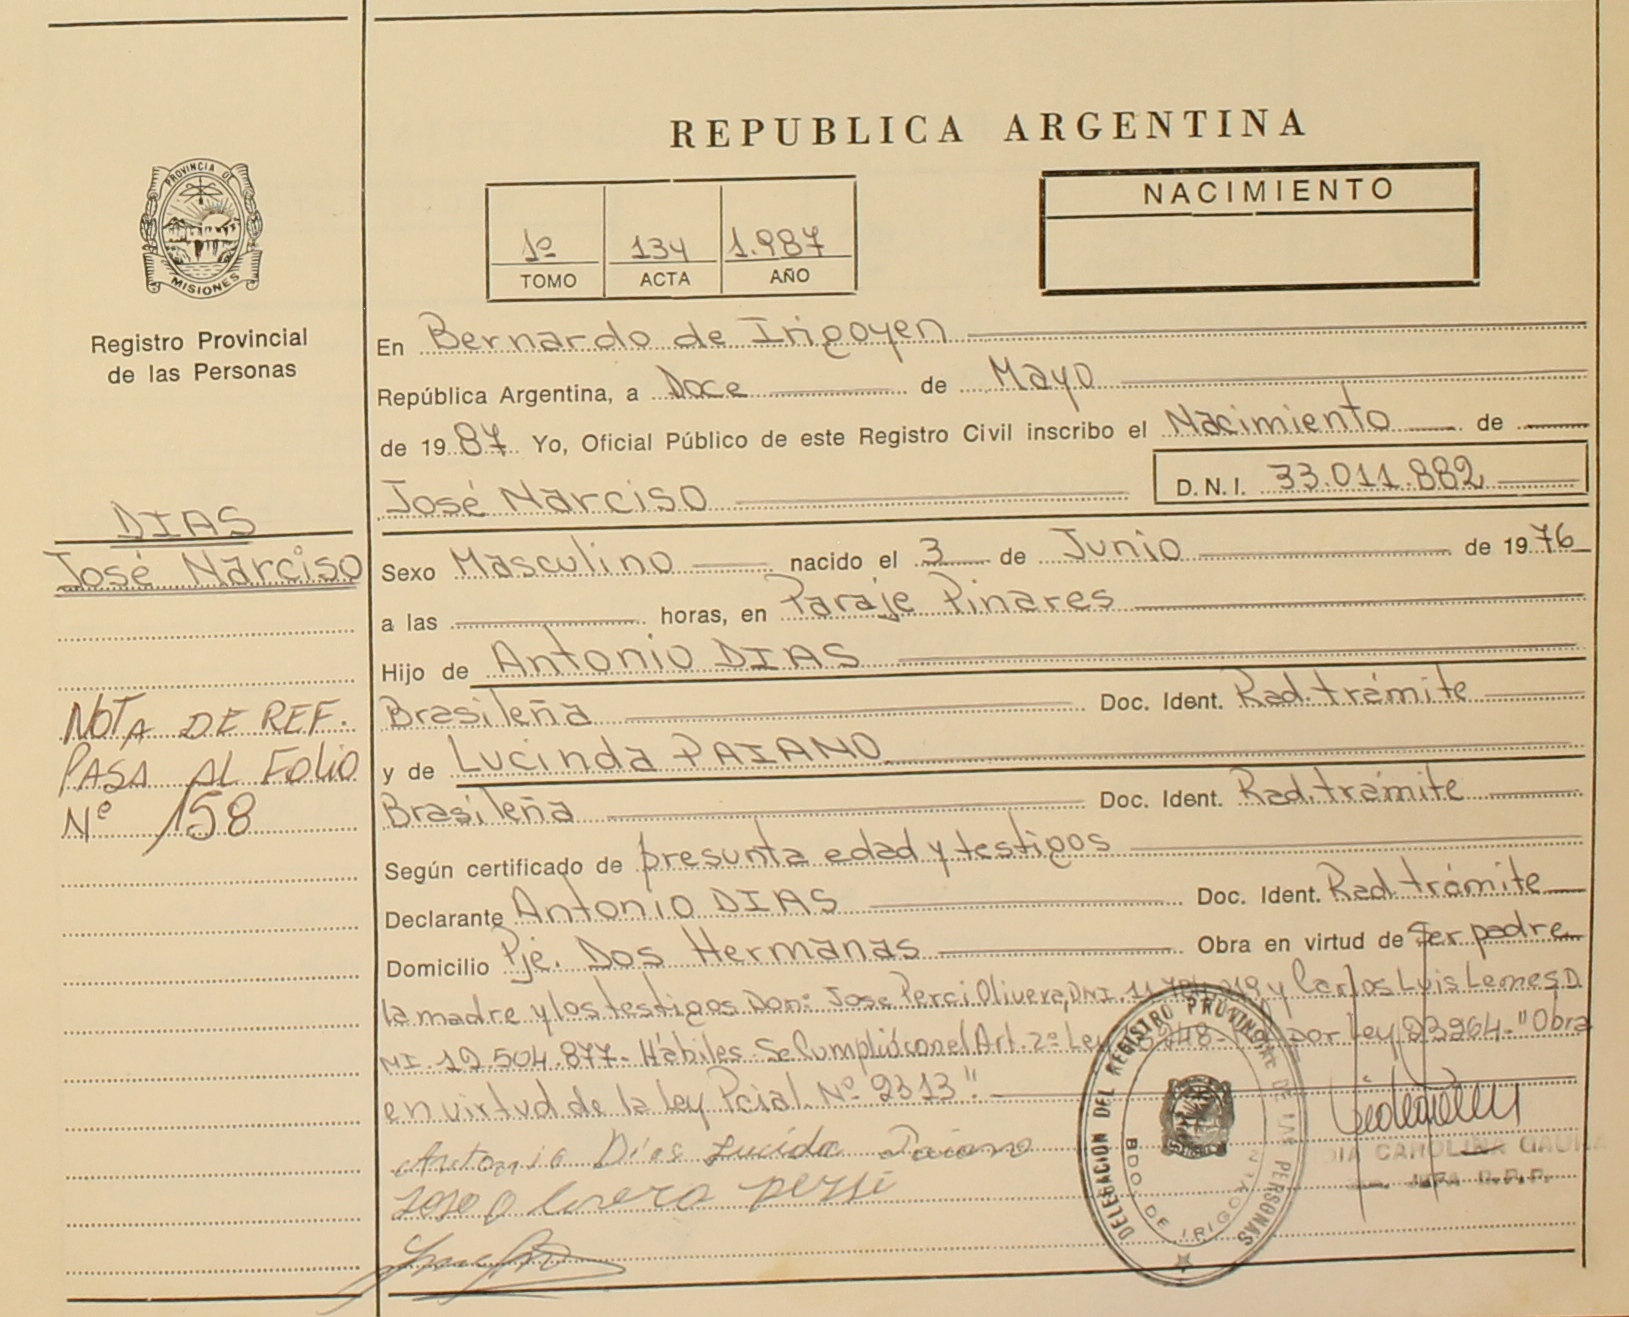 REPUBLICA ARGENTINA
PROVINCIA DE
MISIONES
Registro Provincial
de las Personas
1º 134 1.987
TOMO ACTA AÑO
NACIMIENTO
En Bernardo de Irigoyen
República Argentina, a Doce de Mayo
de 1987 Yo, Oficial Público de este Registro Civil inscribo el Nacimiento de
José Narciso D.N.I. 33.011.882
DIAS
José Narciso
Sexo Masculino nacido el 3 de Junio de 1976
a las horas, en Paraje Pinares
Hijo de Antonio DIAS
Brasileña Doc. Ident. Rad. trámite
y de Lucinda PAIANO
Brasileña Doc. Ident. Rad. trámite
NOTA DE REF.
PASA AL FOLIO
Nº 158
Según certificado de presunta edad y testigos
Declarante Antonio DIAS Doc. Ident. Rad. trámite
Domicilio Pje. Dos Hermanas Obra en virtud de Ser padre
la madre y los testigos Don: José Perci Olivera, DNI. y Carlos Luis Lemes D
NI. 12.504.877- Hábiles- Se Cumplió con el Art. 2º Ley por Ley 23264- "Obra
en virtud de la Ley Pcial. Nº 2313".-
Antonio Dias Lucida Paiano
Jose Olivera persi
DELEGACION DEL REGISTRO PROVINCIAL DE LAS PERSONAS
BDO. DE IRIGOYEN
CAROLINA
JEFA R.P.P.